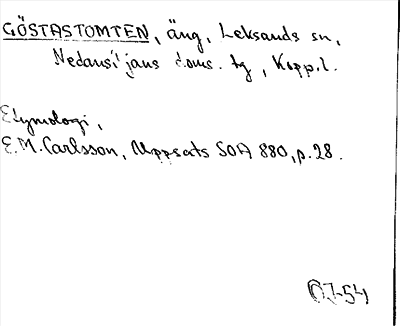 GÖSTASTOMTEN, äng, Leksands sn,
Nedansiljans doms. tg, Kopp.l.
Etymologi,
E.M. Carlsson, Uppsats SOA 880, p. 28.
OJ-54